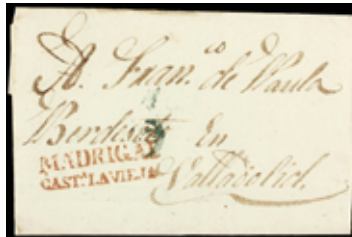 A. Fran.co de Paula
en
MADRIGAL
CAST.LA VIEJA
Valladolid.